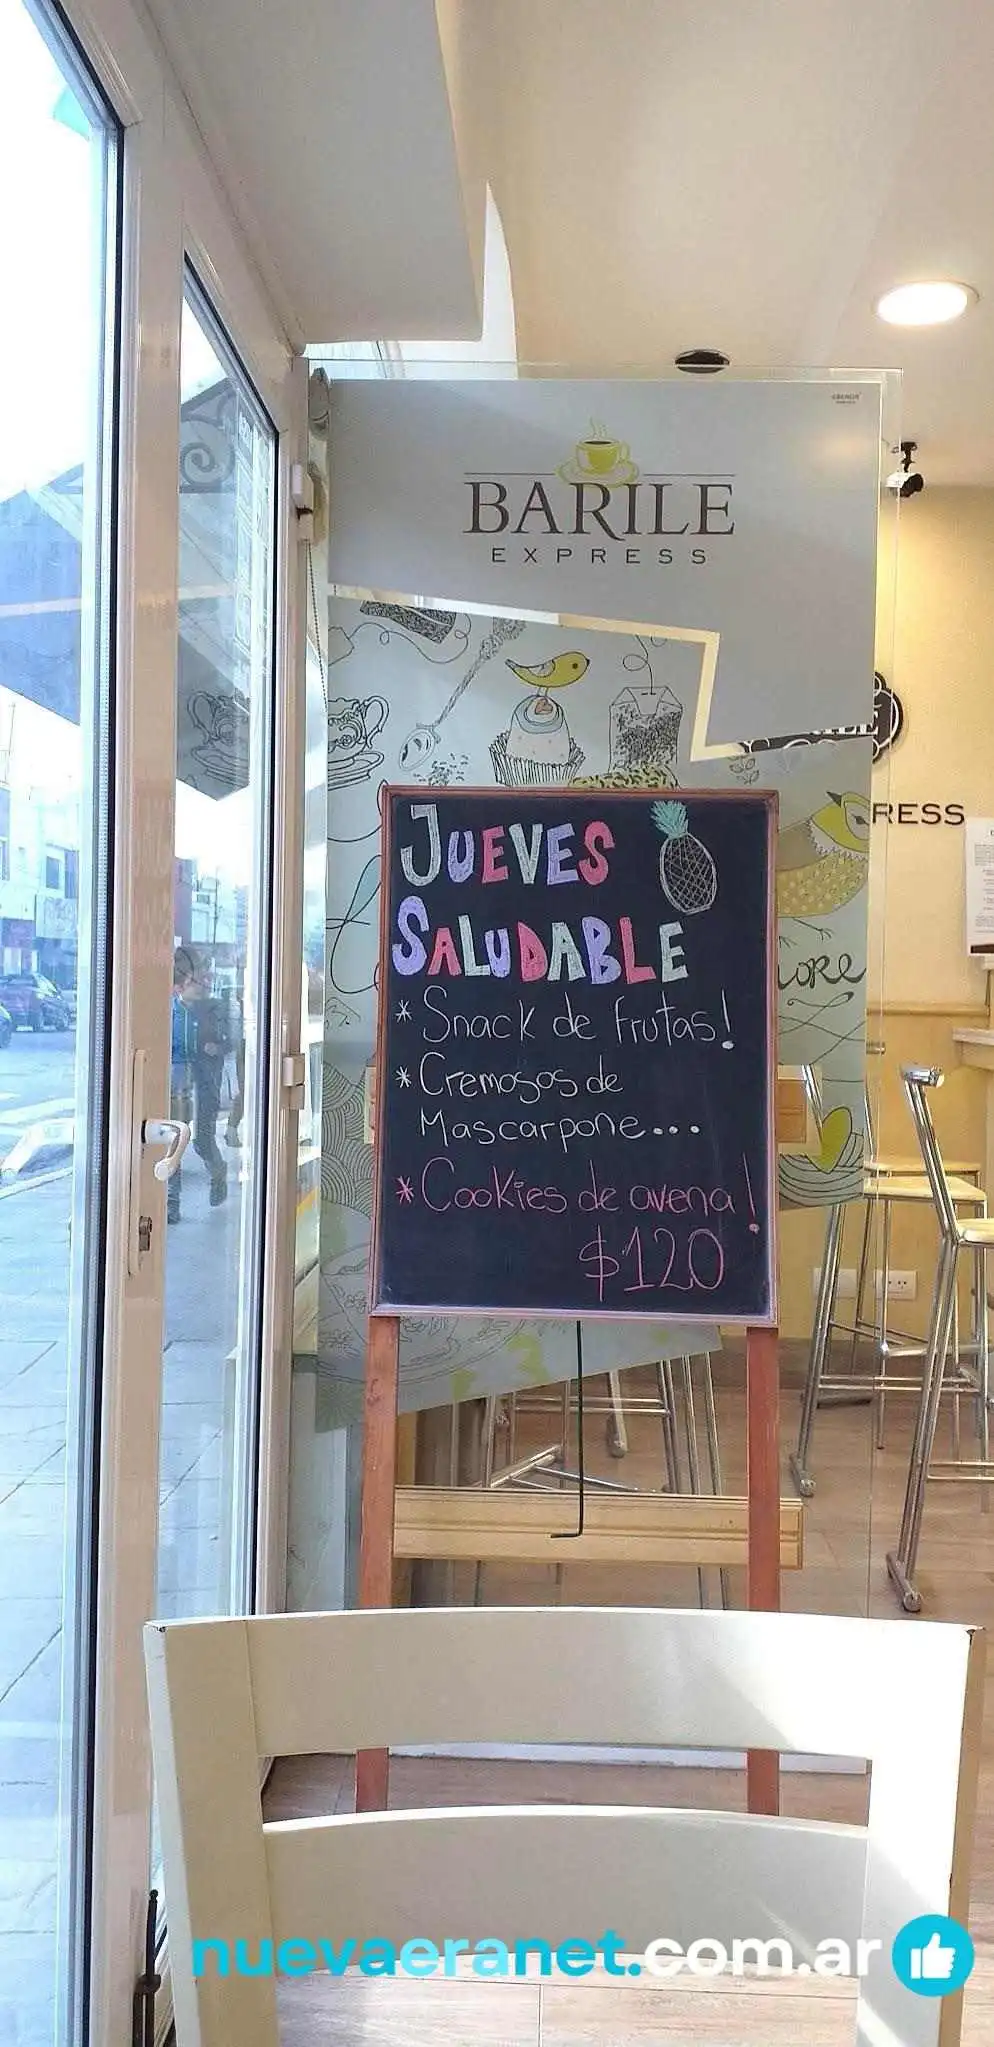 BARILE
EXPRESS
RESS
JUEVES
SALUDABLE
* Snack de frutas!
* Cremosos de
Mascarpone...
* Cookies de avena!
$120
nuevaeranet.com.ar